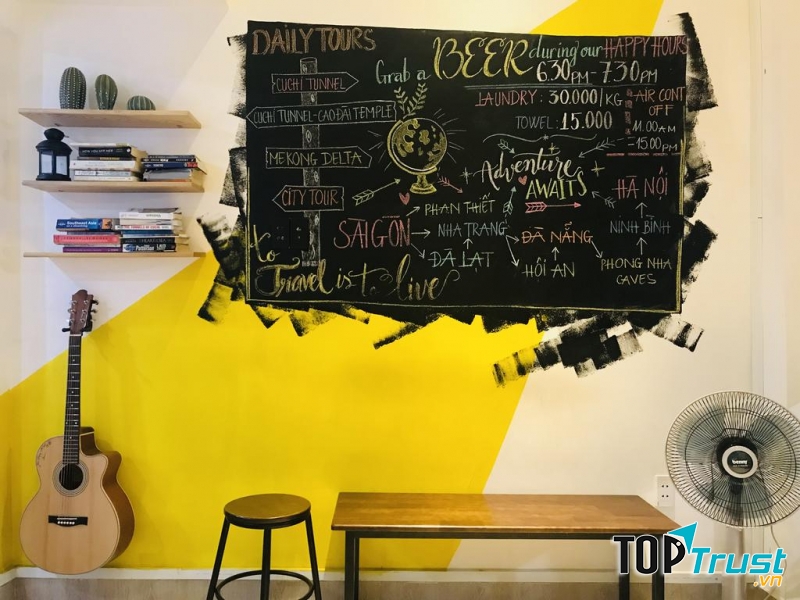 DAILY TOURS
CUCHI TUNNEL
CUCHI TUNNEL-CAO ĐÀI TEMPLE
MEKONG DELTA
CITY TOUR
to Travel is to live
Grab a BEER during our HAPPY HOURS
6.30PM - 7.30PM
LAUNDRY: 30.000/KG
TOWEL: 15.000
AIR CONT
OFF
11.00AM
-15.00PM
Adventure
AWAITS
SAIGÒN
PHAN THIẾT
NHA TRANG
ĐÀ LẠT
ĐÀ NẴNG
HỘI AN
HÀ NỘI
NINH BÌNH
PHONG NHA
CAVES
TOPTrust
.VN